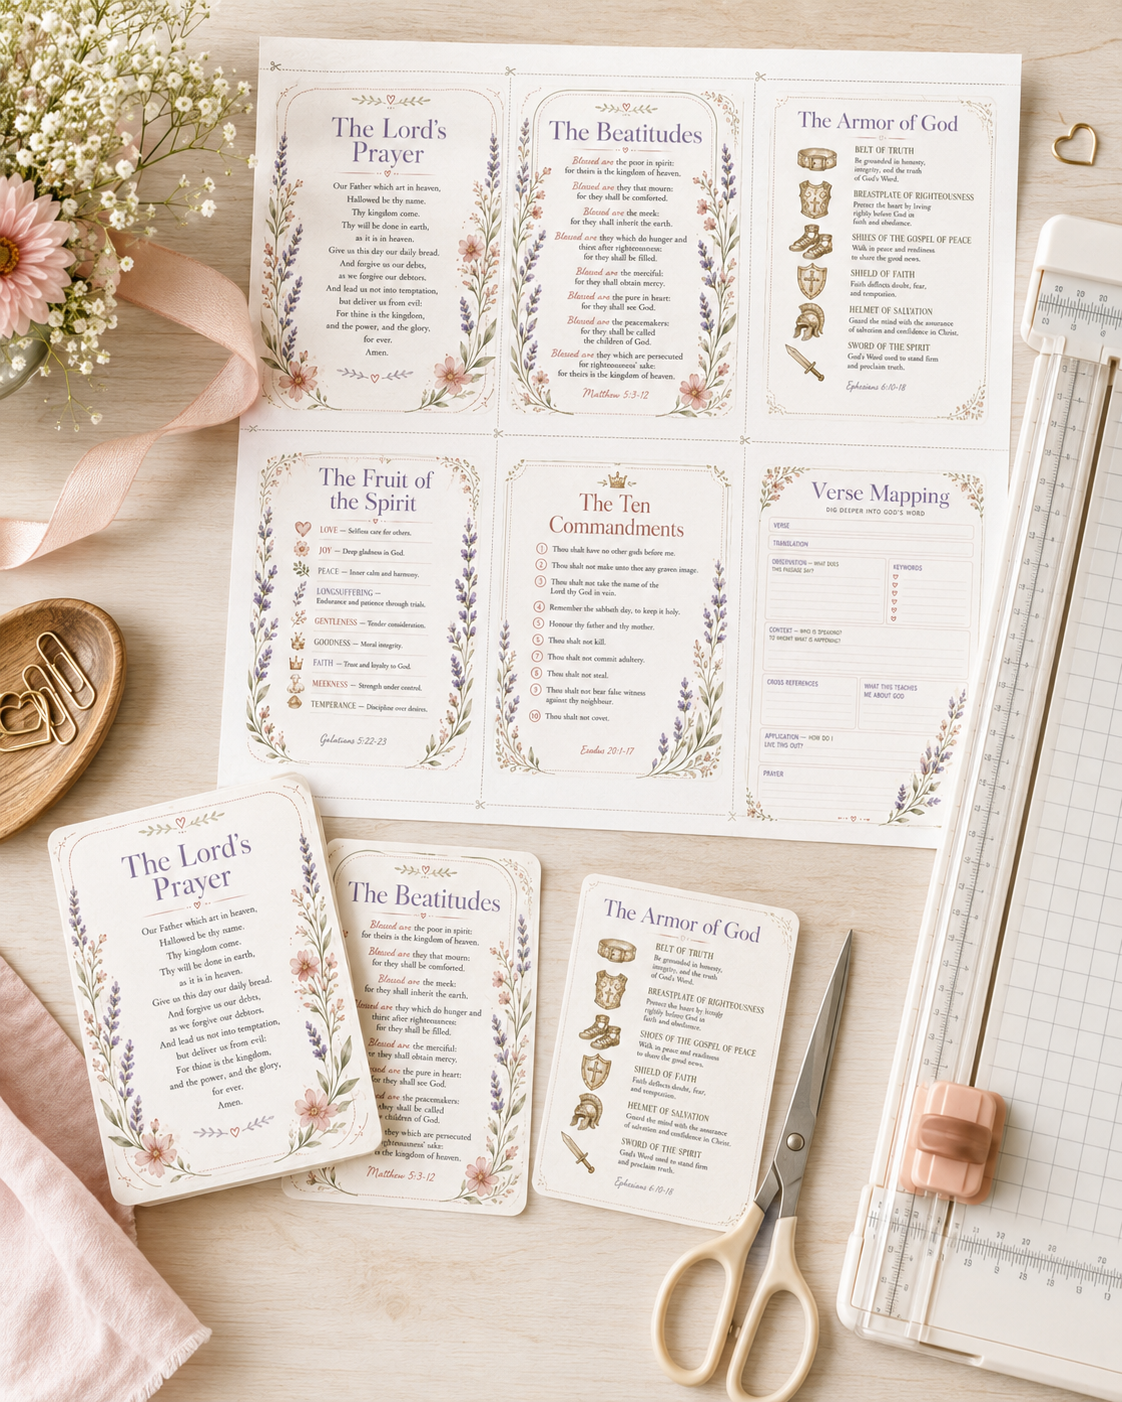 The Lord's
Prayer
Our Father which art in heaven,
Hallowed be thy name.
Thy kingdom come.
Thy will be done in earth,
as it is in heaven.
Give us this day our daily bread.
And forgive us our debts,
as we forgive our debtors.
And lead us not into temptation,
but deliver us from evil:
For thine is the kingdom,
and the power, and the glory,
for ever.
Amen.
The Beatitudes
Blessed are the poor in spirit:
for theirs is the kingdom of heaven.
Blessed are they that mourn:
for they shall be comforted.
Blessed are the meek:
for they shall inherit the earth.
Blessed are they which do hunger and
thirst after righteousness:
for they shall be filled.
Blessed are the merciful:
for they shall obtain mercy.
Blessed are the pure in heart:
for they shall see God.
Blessed are the peacemakers:
for they shall be called
the children of God.
Blessed are they which are persecuted
for righteousness' sake:
for theirs is the kingdom of heaven.
Matthew 5:3-12
The Armor of God
BELT OF TRUTH
Be grounded in honesty,
integrity, and the truth
of God's Word.
BREASTPLATE OF RIGHTEOUSNESS
Protect the heart by living
rightly before God in
faith and obedience.
OF THE GOSPEL OF PEACE
Walk in peace and readiness
to share the good news.
SHIELD OF FAITH
Faith deflects doubt, fear,
and temptation.
HELMET OF SALVATION
Guard the mind with the assurance
of salvation and confidence in Christ.
SWORD OF THE SPIRIT
God's Word used to stand firm
and proclaim truth.
Ephesians 6:10-18
The Fruit of
the Spirit
LOVE — Selfless care for others.
JOY — Deep gladness in God.
PEACE — Inner calm and harmony.
LONGSUFFERING —
Endurance and patience through trials.
GENTLENESS — Tender consideration.
GOODNESS — Moral integrity.
FAITH — Trust and loyalty to God.
MEEKNESS — Strength under control.
TEMPERANCE — Discipline over desires.
Galatians 5:22-23
The Ten
Commandments
1 Thou shalt have no other gods before me.
2 Thou shalt not make unto thee any graven image.
3 Thou shalt not take the name of the
Lord thy God in vain.
4 Remember the sabbath day, to keep it holy.
5 Honour thy father and thy mother.
6 Thou shalt not kill.
7 Thou shalt not commit adultery.
8 Thou shalt not steal.
9 Thou shalt not bear false witness
against thy neighbour.
10 Thou shalt not covet.
Exodus 20:1-17
Verse Mapping
DIG DEEPER INTO GOD'S WORD
VERSE
TRANSLATION
OBSERVATION — WHAT DOES
THIS PASSAGE SAY?
KEYWORDS
CONTEXT — WHO IS SPEAKING?
TO WHOM? WHAT IS HAPPENING?
CROSS REFERENCES
WHAT THIS TEACHES
ME ABOUT GOD
APPLICATION — HOW DO I
LIVE THIS OUT?
PRAYER
The Lord's
Prayer
Our Father which art in heaven,
Hallowed be thy name.
Thy kingdom come.
Thy will be done in earth,
as it is in heaven.
Give us this day our daily bread.
And forgive us our debts,
as we forgive our debtors.
And lead us not into temptation,
but deliver us from evil:
For thine is the kingdom,
and the power, and the glory,
for ever.
Amen.
The Beatitudes
Blessed are the poor in spirit:
for theirs is the kingdom of heaven.
Blessed are they that mourn:
for they shall be comforted.
Blessed are the meek:
for they shall inherit the earth.
are they which do hunger and
thirst after righteousness:
for they shall be filled.
are the merciful:
they shall obtain mercy.
are the pure in heart:
for they shall see God.
are the peacemakers:
they shall be called
children of God.
they which are persecuted
righteousness' sake:
is the kingdom of heaven.
Matthew 5:3-12
The Armor of God
BELT OF TRUTH
Be grounded in honesty,
integrity, and the truth
of God's Word.
BREASTPLATE OF RIGHTEOUSNESS
Protect the heart by living
rightly before God in
faith and obedience.
SHOES OF THE GOSPEL OF PEACE
Walk in peace and readiness
to share the good news.
SHIELD OF FAITH
Faith deflects doubt, fear,
and temptation.
HELMET OF SALVATION
Guard the mind with the assurance
of salvation and confidence in Christ.
SWORD OF THE SPIRIT
God's Word used to stand firm
and proclaim truth.
Ephesians 6:10-18